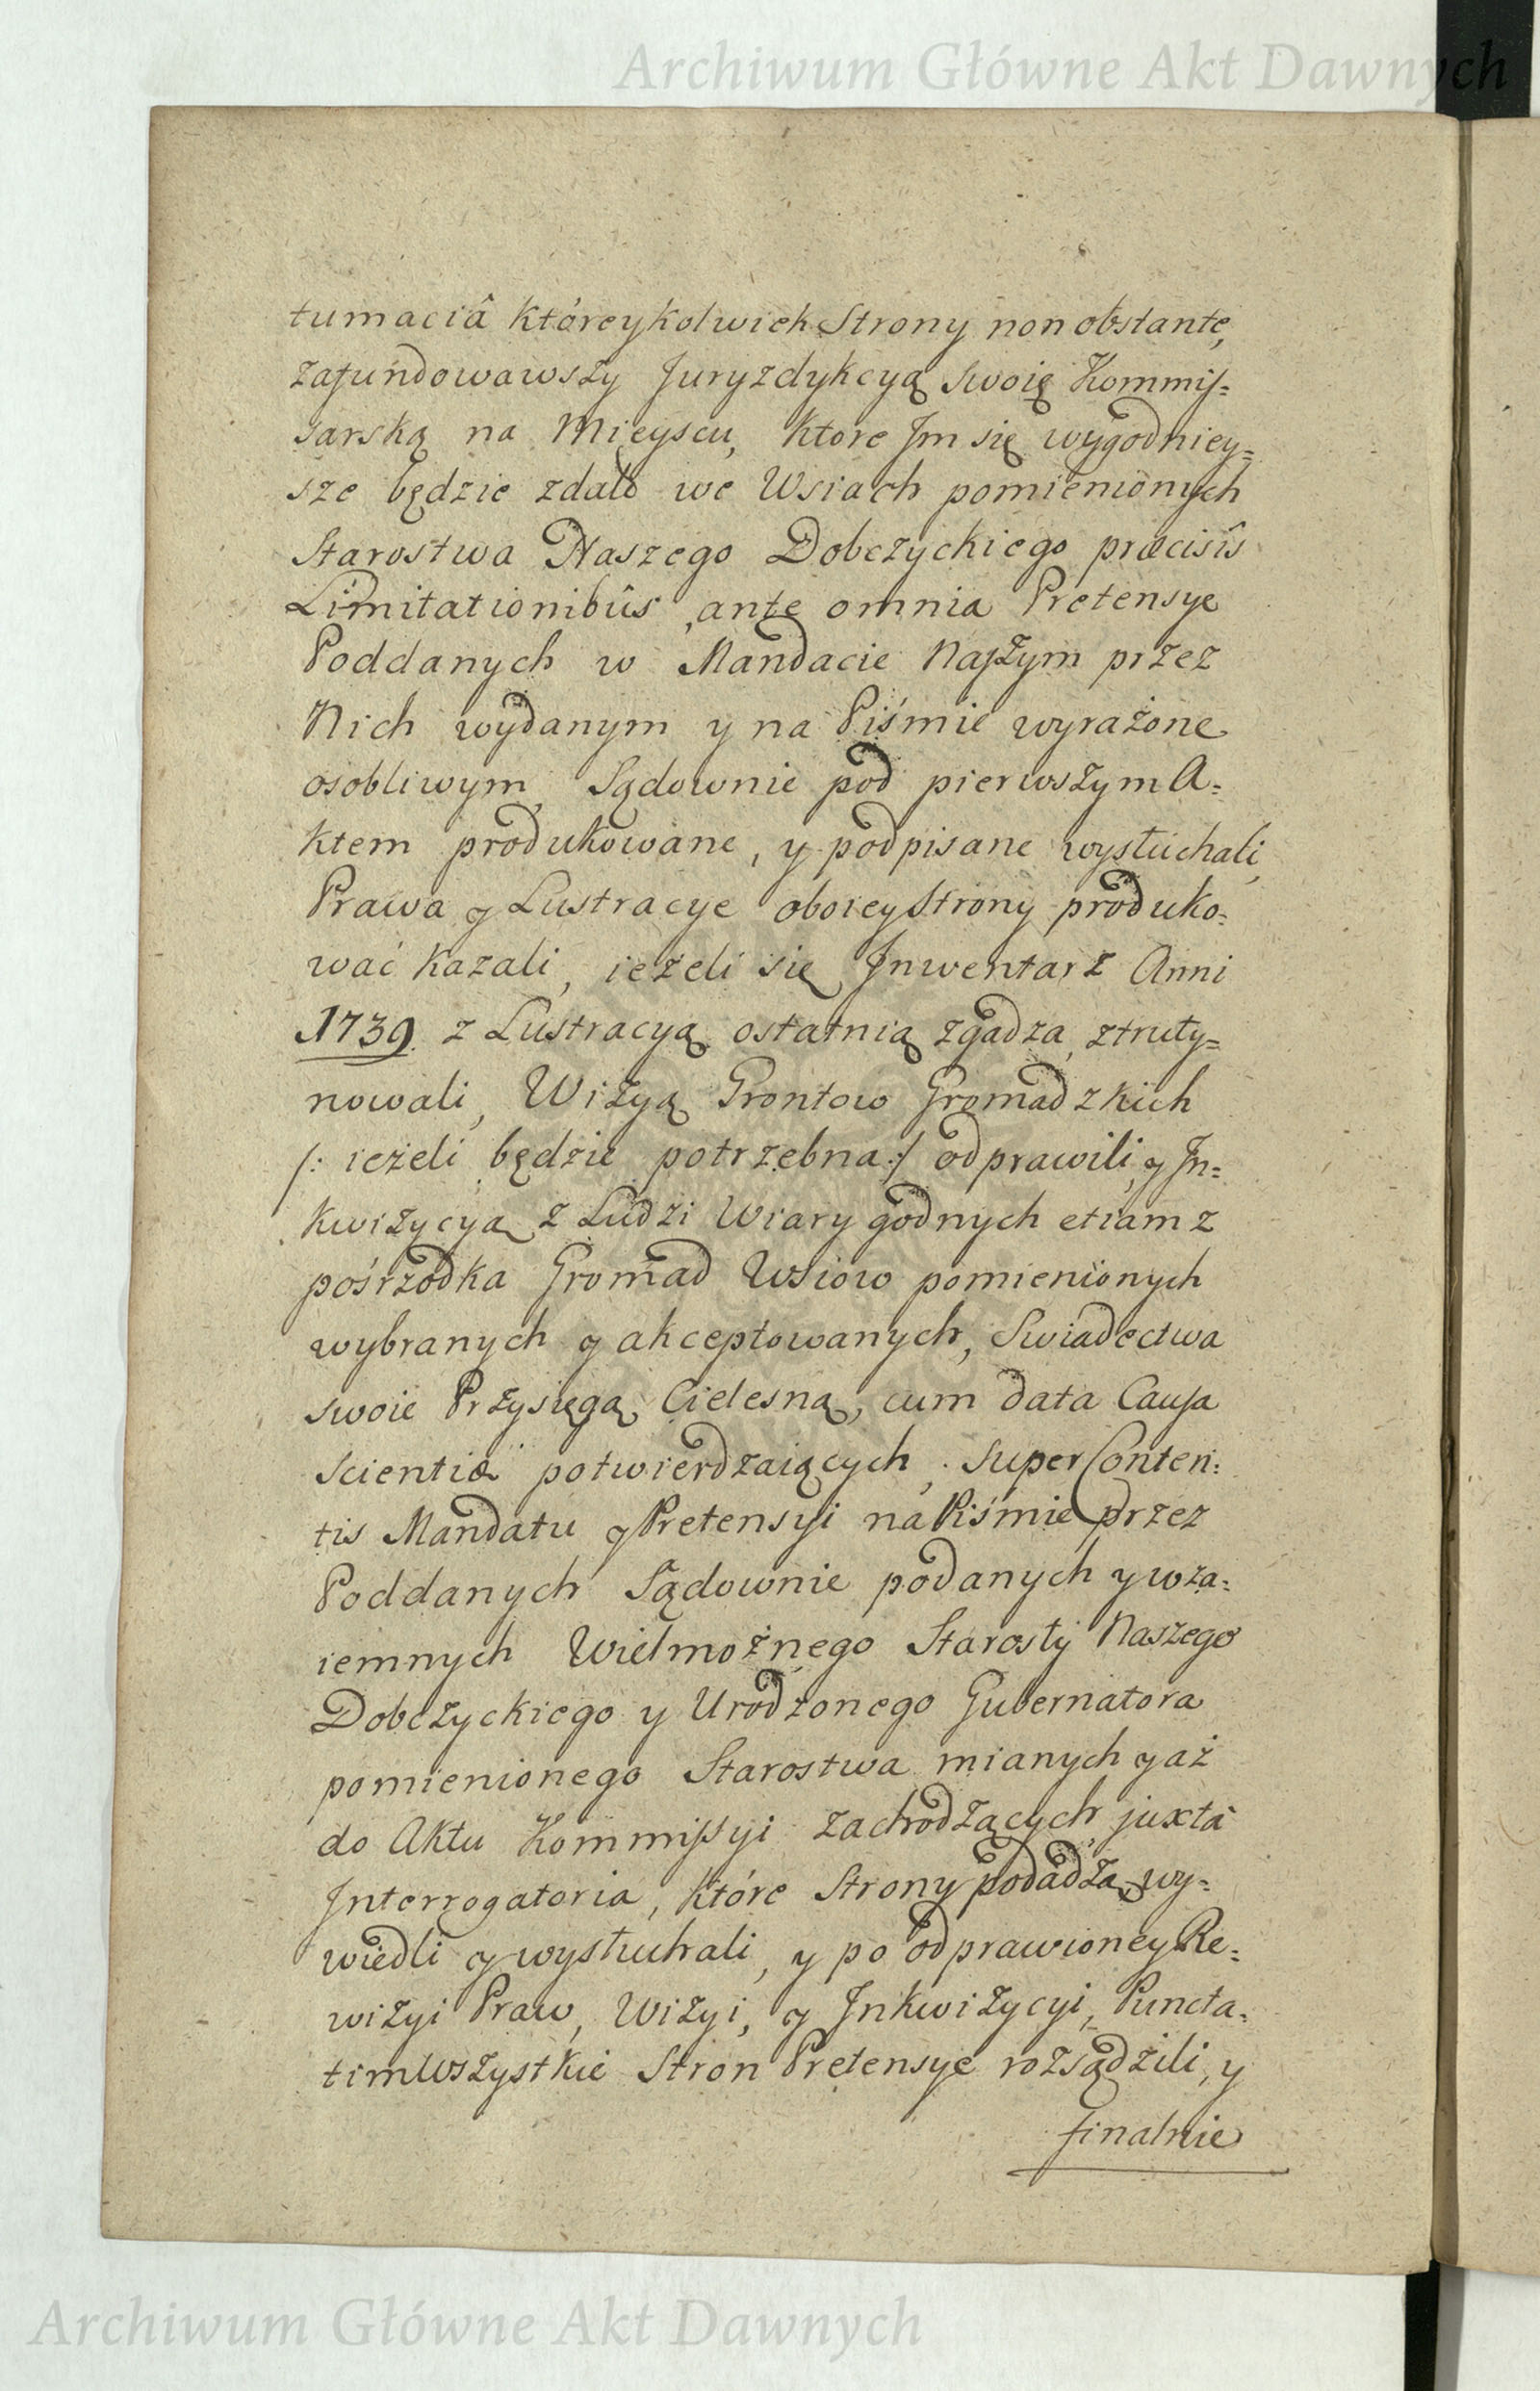 Archiwum Główne Akt Dawnych
tumaciâ któreykolwiek Strony non obstante,
zafundowawszy Juryzdykcyą swoię Kommis=
sarską na Mieyscu, ktore Jm się wygodniey=
sze będzie zdało we Wsiach pomienionych
Starostwa Naszego Dobczyckiego præcisîs
Limitationibûs, ante omnia Pretensye
Poddanych w Mandacie Naszym przez
Nich wydanym y na Piśmie wyrażone
osobliwym, Sądownie pod pierwszym A=
ktem produkowane, y podpisane wysłuchali,
Prawa y Lustracye oboiey Strony produko=
wać kazali, ieżeli się Jnwentarz Anni
1739. z Lustracyą ostatnią zgadza, ztruty=
nowali, Wizyą Grontow Gromadzkich
/: ieżeli będzie potrzebna :/ odprawili, y Jn=
kwizycyą z Ludzi Wiary godnych etiam z
pośrzodka Gromad Wsiow pomienionych
wybranych y akceptowanych, Swiadectwa
swoie Przysięgą Cielesną, cum data Causa
scientiæ potwierdzaiących, super Conten=
tis Mandatu y Pretensyi na Piśmie przez
Poddanych Sądownie podanych y wza=
iemnych Wielmożnego Starosty Naszego
Dobczyckiego y Urodzonego Gubernatora
pomienionego Starostwa mianych y aż
do Aktu Kommissyi zachodzących juxta
Interrogatoria, które Strony podadzą, wy=
wiedli y wysłuchali, y po odprawioney Re=
wizyi Praw, Wizyi, y Jnkwizycyi, Puncta=
tim Wszystkie Stron Pretensye rozsądzili, y
finalnie
Archiwum Główne Akt Dawnych